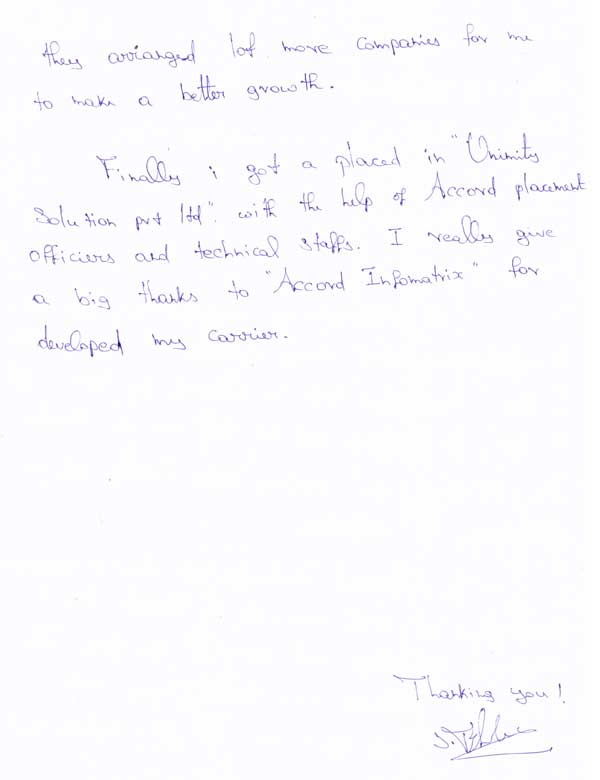 they arrianged lof more companies for me
to make a better growth.
Finally i got a placed in "Unimity
Solution pvt ltd". with the help of Accord placement
officiers and technical staffs. I really give
a big thanks to "Accord Infomatrix" for
developed my carrier.
Thanking you!